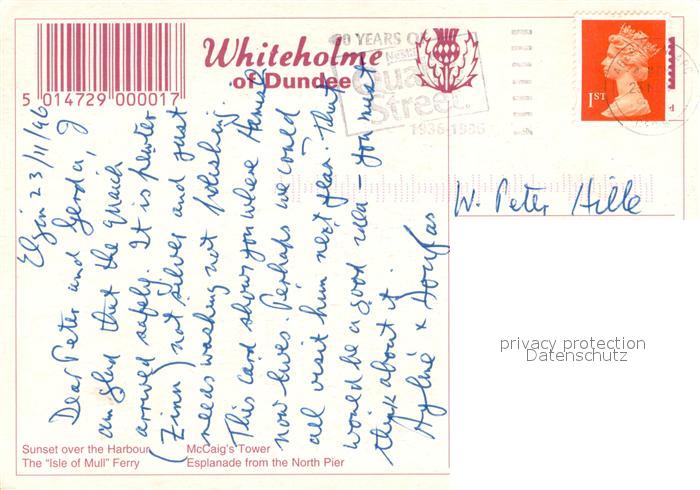 5 014729 000017
Whiteholme
of Dundee
60 YEARS OF
Nestlé
Quality
Street
1936-1996
1ST
Elgin 23/11/96
Dear Peter and Gerda, I
am glad that the Quaich
arrived safely. It is pewter
(Zinn) not silver and just
needs washing not polishing.
This card shows you where Hamish
now lives. Perhaps we could
all visit him next year. That
would be a good idea - you must
think about it.
& Douglas
W. Peter Hille
privacy protection
Datenschutz
Sunset over the Harbour
The "Isle of Mull" Ferry
McCaig's Tower
Esplanade from the North Pier